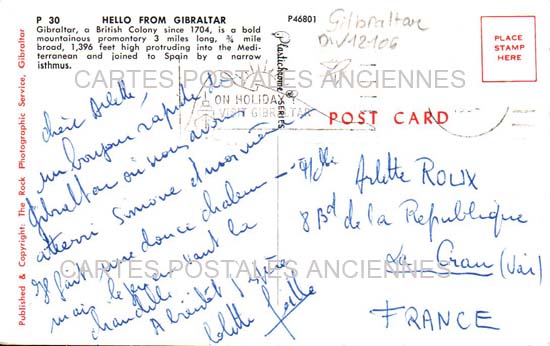 P 30 HELLO FROM GIBRALTAR
Gibraltar, a British Colony since 1704, is a bold
mountainous promontory 3 miles long, ¾ mile
broad, 1,396 feet high protruding into the Medi-
terranean and joined to Spain by a narrow
isthmus.
P46801
Gibraltar
Div 12106
PLACE
STAMP
HERE
CARTES POSTALES ANCIENNES
ON HOLIDAY
VISIT GIBRALTAR
Plastichrome SERIES
POST CARD
Published & Copyright: The Rock Photographic Service, Gibraltar
chère Arlette,
un bonjour rapide de
Gibraltar où nous avons
atterri Simone et moi même
Il fait une douce chaleur
mais le voyage vaut la
chandelle.
A bientôt j'espère
Colette
Mlle
Arlette ROUX
8 Bd de la République
La Crau (Var)
FRANCE
CARTES POSTALES ANCIENNES